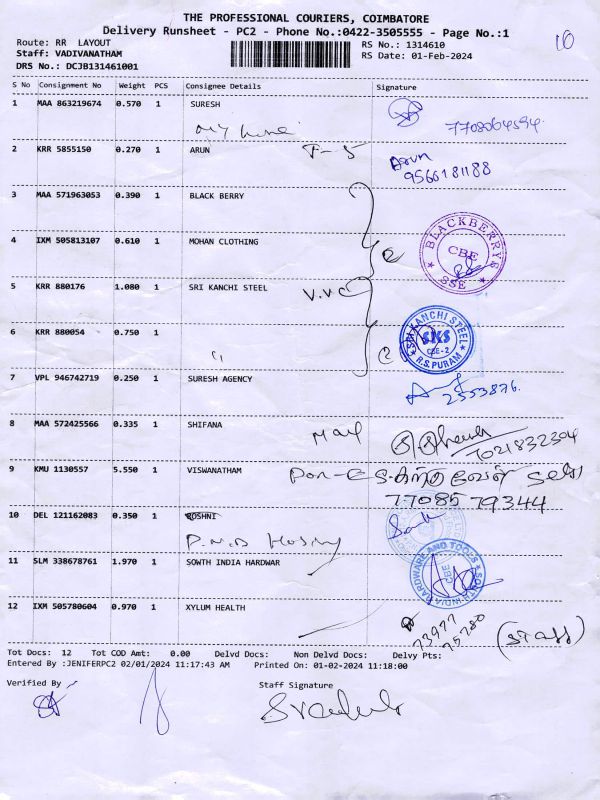 THE PROFESSIONAL COURIERS, COIMBATORE
Delivery Runsheet - PC2 - Phone No.:0422-3505555 - Page No.:1
Route: RR LAYOUT
RS No.: 1314610
10
Staff: VADIVANATHAM
RS Date: 01-Feb-2024
DRS No.: DCJB131461001
S No Consignment No Weight PCS Consignee Details Signature
1 MAA 863219674 0.570 1 SURESH
2 KRR 5855150 0.270 1 ARUN
Arun
9566181188
3 MAA 571963053 0.390 1 BLACK BERRY
4 IXM 505813107 0.610 1 MOHAN CLOTHING
BLACKBERRYS
CBE
SSE
5 KRR 880176 1.080 1 SRI KANCHI STEEL V.VC
6 KRR 880054 0.750 1 "
SRI KANCHI STEEL
SKS
CBE-2
R.S. PURAM
7 VPL 946742719 0.250 1 SURESH AGENCY
2553876.
8 MAA 572425566 0.335 1 SHIFANA
7021832304
9 KMU 1130557 5.550 1 VISWANATHAM
77085 79344
10 DEL 121162083 0.350 1 ROSHNI
11 SLM 338678761 1.970 1 SOWTH INDIA HARDWAR
SOUTH INDIA HARDWARE AND TOOLS
CBE
12 IXM 505780604 0.970 1 XYLUM HEALTH
73977
75780
(Staff)
Tot Docs: 12 Tot COD Amt: 0.00 Delvd Docs: Non Delvd Docs: Delvy Pts:
Entered By :JENIFERPC2 02/01/2024 11:17:43 AM Printed On: 01-02-2024 11:18:00
Verified By
Staff Signature